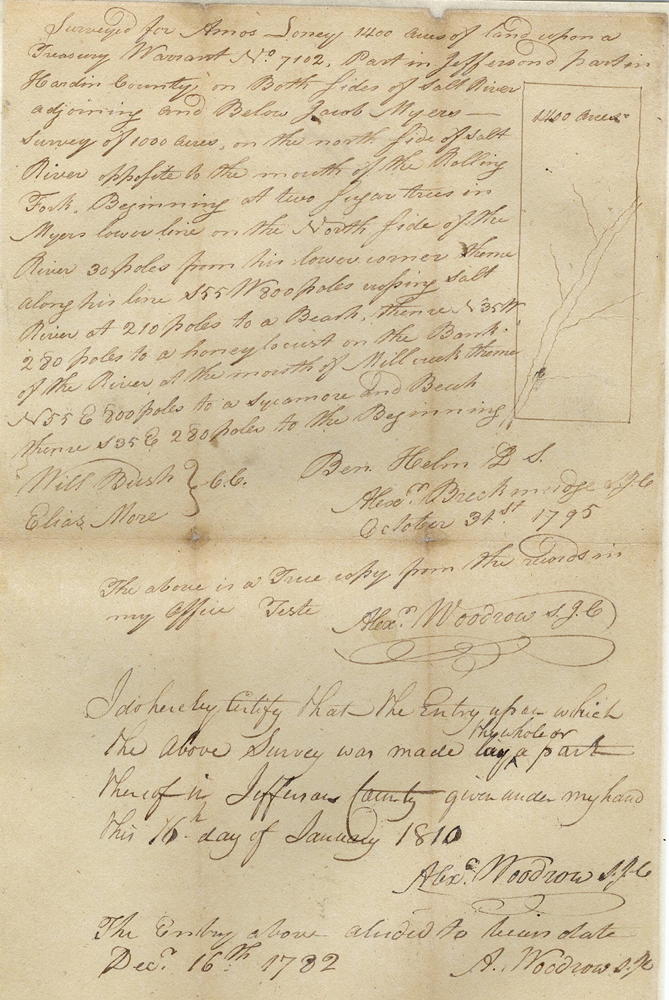 Surveyed for Amos Loney 1400 acres of land upon a
Treasury Warrant No 7102, Part in Jefferson & part in
Hardin County, on Both sides of Salt River
adjoining and Below Jacob Myers —
Survey of 1000 acres, on the north side of Salt
River opposite to the mouth of the Rolling
Fork, Beginning at two sugar trees in
Myers lower line on the North side of the
River 30 poles from his lower corner thence
along his line S55 W 800 poles crossing Salt
River at 210 poles to a Beach, thence N35 W
280 poles to a honey locust on the Bank
of the River at the mouth of Mill creek thence
N55 E 800 poles to a Sycamore and Beech
thence S35 E 280 poles to the Beginning
1400 acres
Will Bush } C.C.
Elias More
Ben. Helm D S.
Alexr. Breckinridge S.J.C
October 31st. 1795
The above is a True copy from the records in
my Office Teste Alexr. Woodrow S.J.C
I do hereby Certify that the Entry upon which
the whole or
the above Survey was made lay a part
thereof in Jefferson County given under my hand
this 16th day of January 1810
Alexr. Woodrow S.J.C
The Entry above aluded to bears date
Decr. 16th 1782 A. Woodrow S.J.C